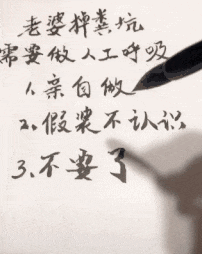 老婆掉粪坑
需要做人工呼吸
1、亲自做
2、假装不认识
3、不要了